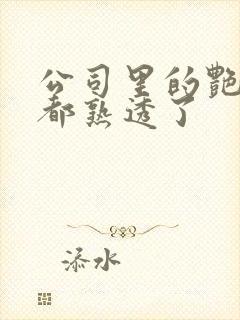 公司里的艳
都熟透了
添水